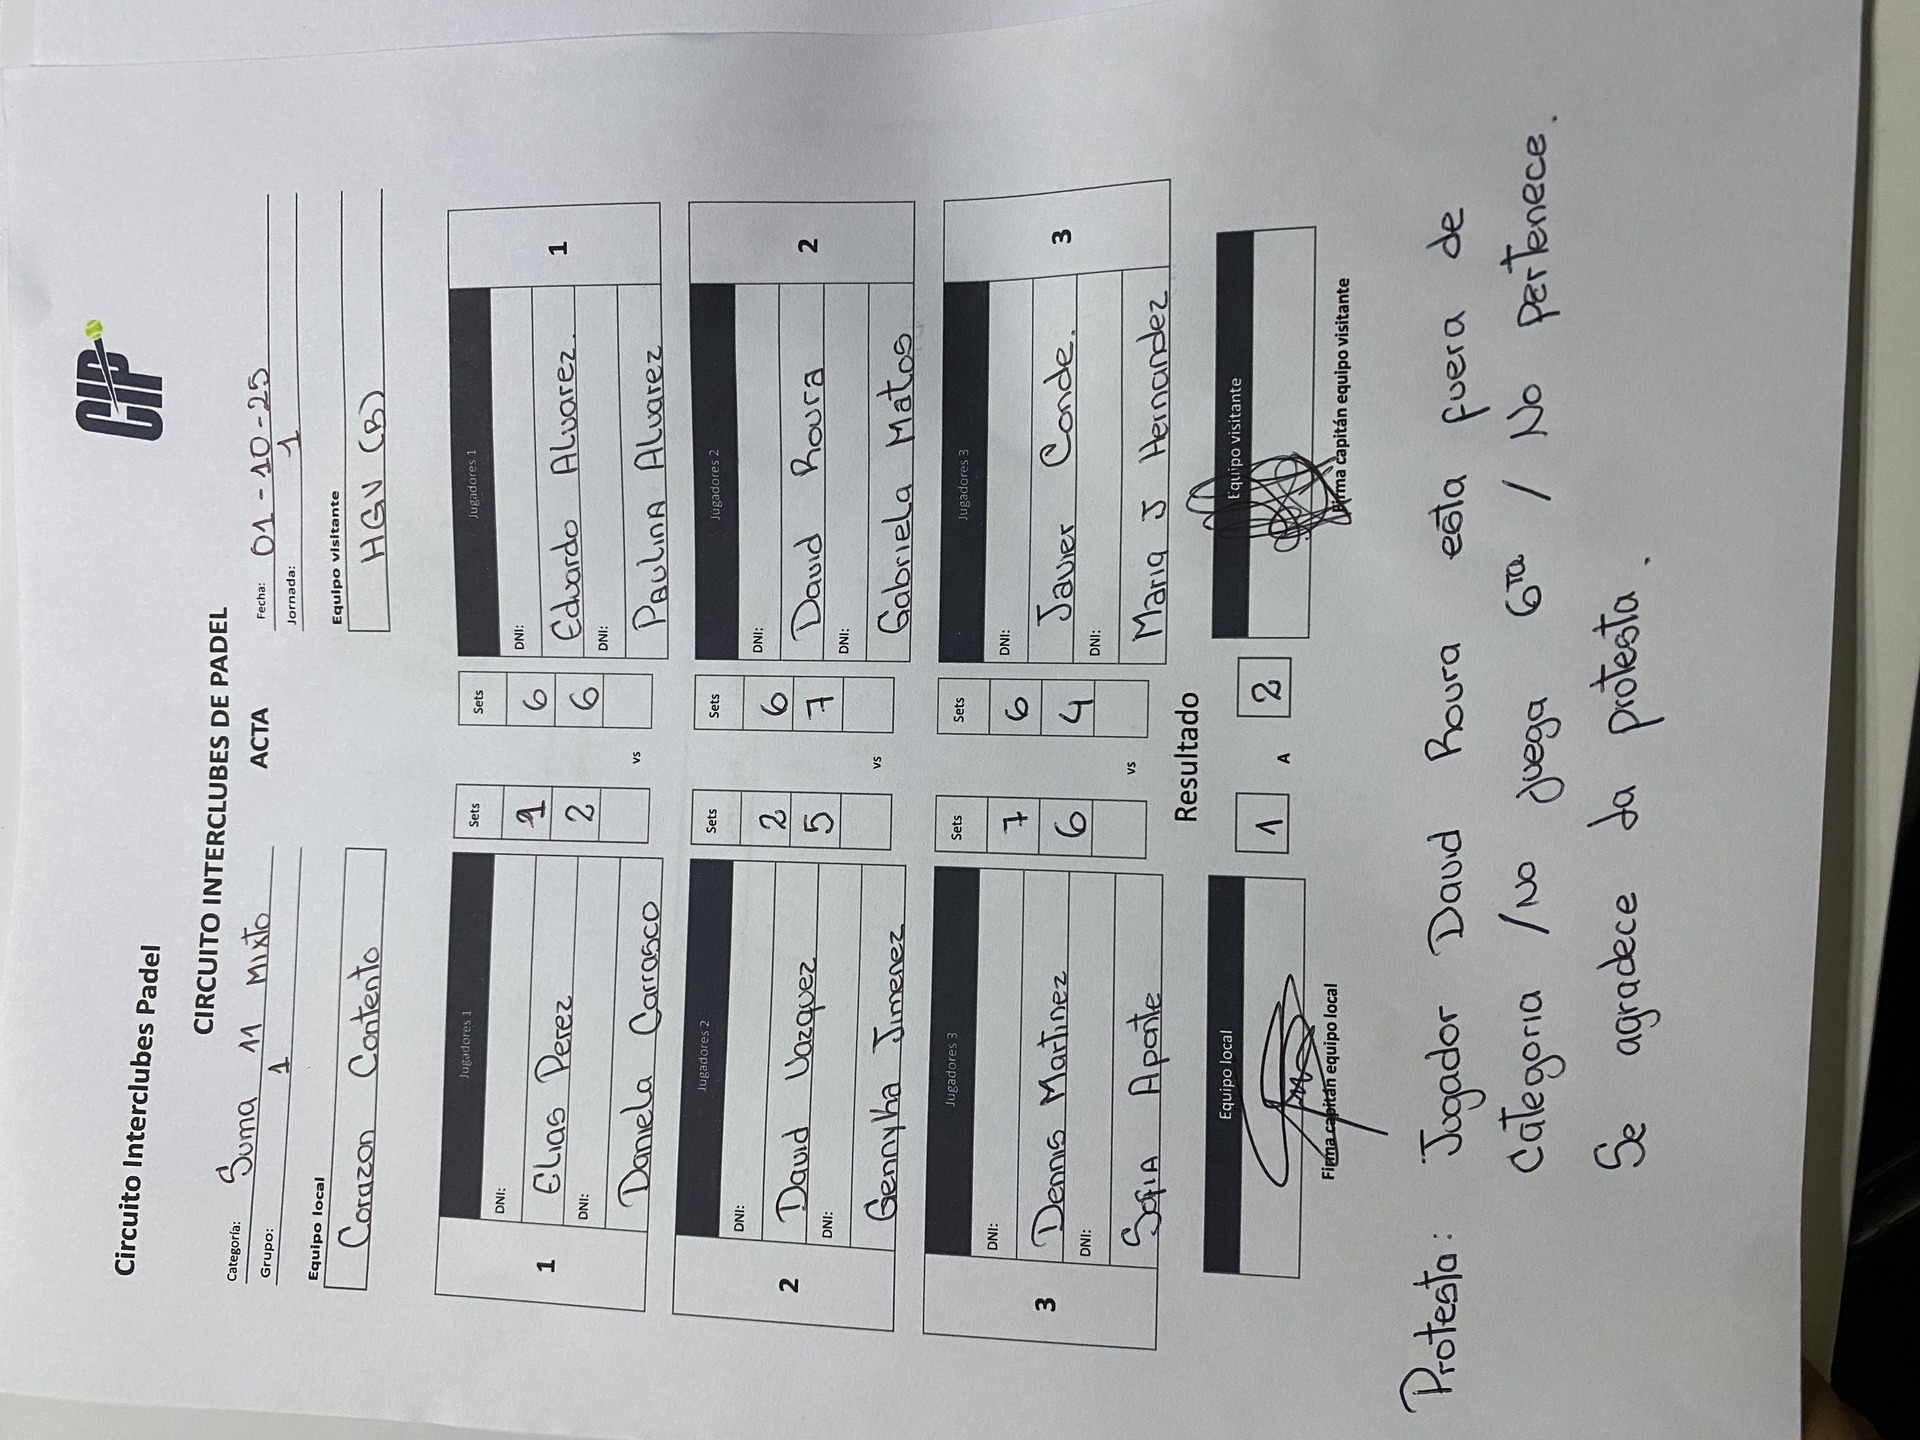 CIP
Circuito Interclubes Padel
CIRCUITO INTERCLUBES DE PADEL
ACTA
Categoría: Suma 11 Mixto
Fecha: 01-10-25
Grupo: 1
Jornada: 1
Equipo local
Equipo visitante
Corazon Contento
HGV (B)
Jugadores 1 Sets Sets Jugadores 1
1 DNI: 1 6 DNI: 1
Elias Perez 2 6 Eduardo Alvarez.
DNI: DNI:
Daniela Carrasco vs Paulina Alvarez
Jugadores 2 Sets Sets Jugadores 2
2 DNI: 2 6 DNI: 2
David Vazquez 5 7 David Roura
DNI: DNI:
Gennyha Jimenez vs Gabriela Matos
Jugadores 3 Sets Sets Jugadores 3
3 DNI: 7 6 DNI: 3
Dennis Martinez 6 4 Javier Conde.
DNI: DNI:
Sofia Aponte vs Maria J Hernandez
Resultado
Equipo local 1 A 2 Equipo visitante
Firma capitán equipo local
Firma capitán equipo visitante
Protesta: Jugador David Roura esta fuera de
Categoria / No juega 6ta / No pertenece.
Se agradece la protesta.